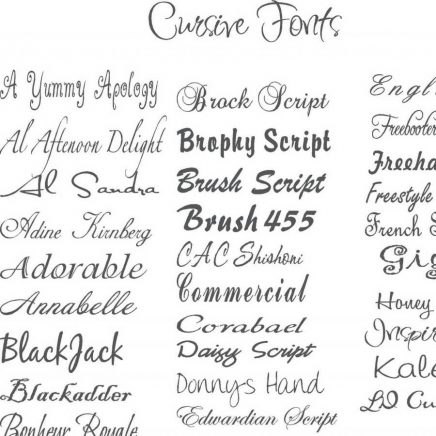 Cursive Fonts
A Yummy Apology
Al Afternoon Delight
Al Sandra
Adine Kirnberg
Adorable
Annabelle
BlackJack
Blackadder
Bonheur Royale
Brock Script
Brophy Script
Brush Script
Brush 455
CAC Shishoni
Commercial
Corabael
Daisy Script
Donny's Hand
Edwardian Script
Engl
Freebooter
Freeha
Freestyle
French S
Gig
Honey
Inspir
Kale
LD Cu